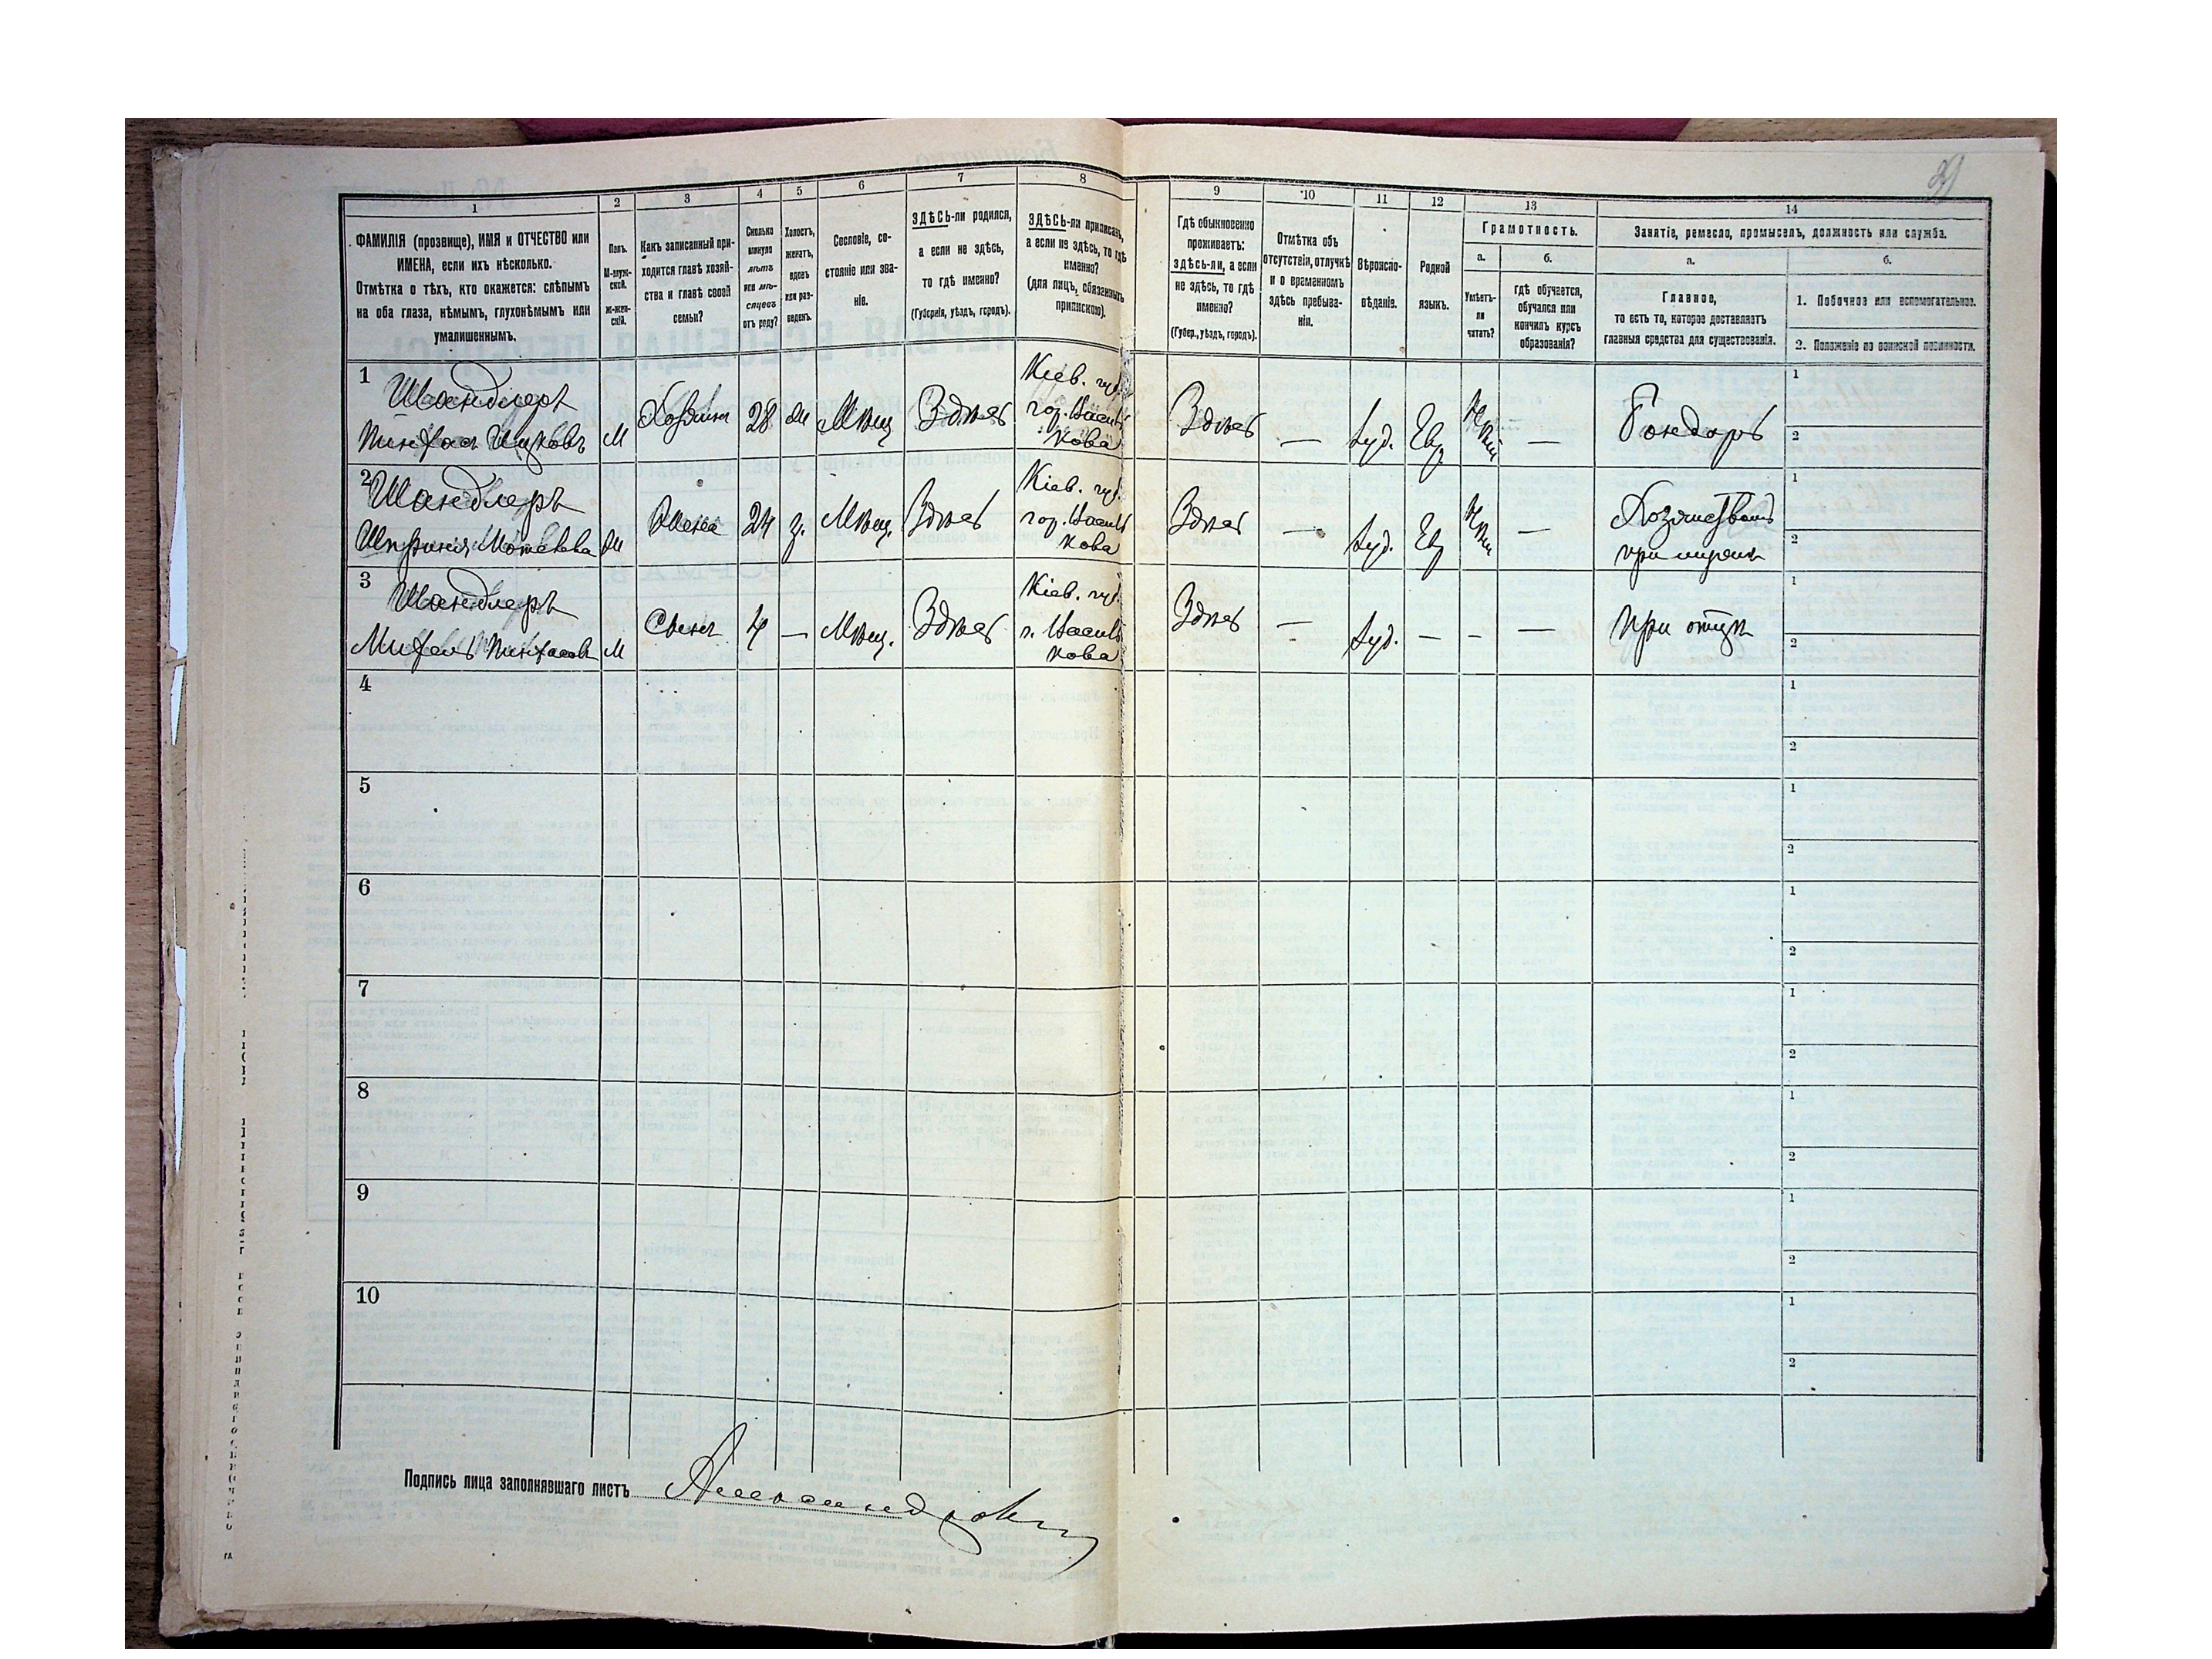 1
2
3
4
5
6
7
8
9
10
11
12
13
14
ФАМИЛІЯ (прозвище), ИМЯ и ОТЧЕСТВО или
ИМЕНА, если ихъ нѣсколько.
Отмѣтка о тѣхъ, кто окажется: слѣпымъ
на оба глаза, нѣмымъ, глухонѣмымъ или
умалишеннымъ.
Полъ.
М-муж-
ской.
ж-жен-
скій.
Какъ записанный при-
ходится главѣ хозяй-
ства и главѣ своей
семьи?
Сколько
минуло
лѣтъ
или мѣ-
сяцевъ
отъ роду?
Холостъ,
женатъ,
вдовъ
или раз-
веденъ.
Сословіе, со-
стояніе или зва-
ніе.
ЗДѢСЬ-ли родился,
а если не здѣсь,
то гдѣ именно?
(Губернія, уѣздъ, городъ).
ЗДѢСЬ-ли приписанъ,
а если не здѣсь, то гдѣ
именно?
(для лицъ, обязанныхъ
припискою).
Гдѣ обыкновенно
проживаетъ:
здѣсь-ли, а если
не здѣсь, то гдѣ
именно?
(Губер., уѣздъ, городъ).
Отмѣтка объ
отсутствіи, отлучкѣ
и о временномъ
здѣсь пребыва-
ніи.
Вѣроиспо-
вѣданіе.
Родной
языкъ.
Грамотность.
а.
б.
Умѣетъ-
ли
читать?
гдѣ обучается,
обучался или
кончилъ курсъ
образованія?
Занятіе, ремесло, промыселъ, должность или служба.
а.
б.
Главное,
то есть то, которое доставляетъ
главныя средства для существованія.
1. Побочное или вспомогательное.
2. Положеніе по воинской повинности.
1
Шандлеръ
Пинхасъ Ицковъ
М
Хозяинъ
28
Мѣщ.
Здѣсь
Кіев. губ.
гор. Василь
кова
Здѣсь
—
Іуд.
Евр
—
Бондарь
1
2
2
Шандлеръ
Жена
24
з.
Мѣщ.
Здѣсь
Кіев. губ.
гор. Василь
кова
Здѣсь
—
Іуд.
Евр
—
при мужѣ
1
2
3
Шандлеръ
Михель Пинхасовъ
М
Сынъ
4
—
Мѣщ.
Здѣсь
Кіев. губ.
г. Василь
кова
Здѣсь
—
Іуд.
—
—
—
При отцѣ
1
2
4
1
2
5
1
2
6
1
2
7
1
2
8
1
2
9
1
2
10
1
2
Подпись лица заполнявшаго листъ